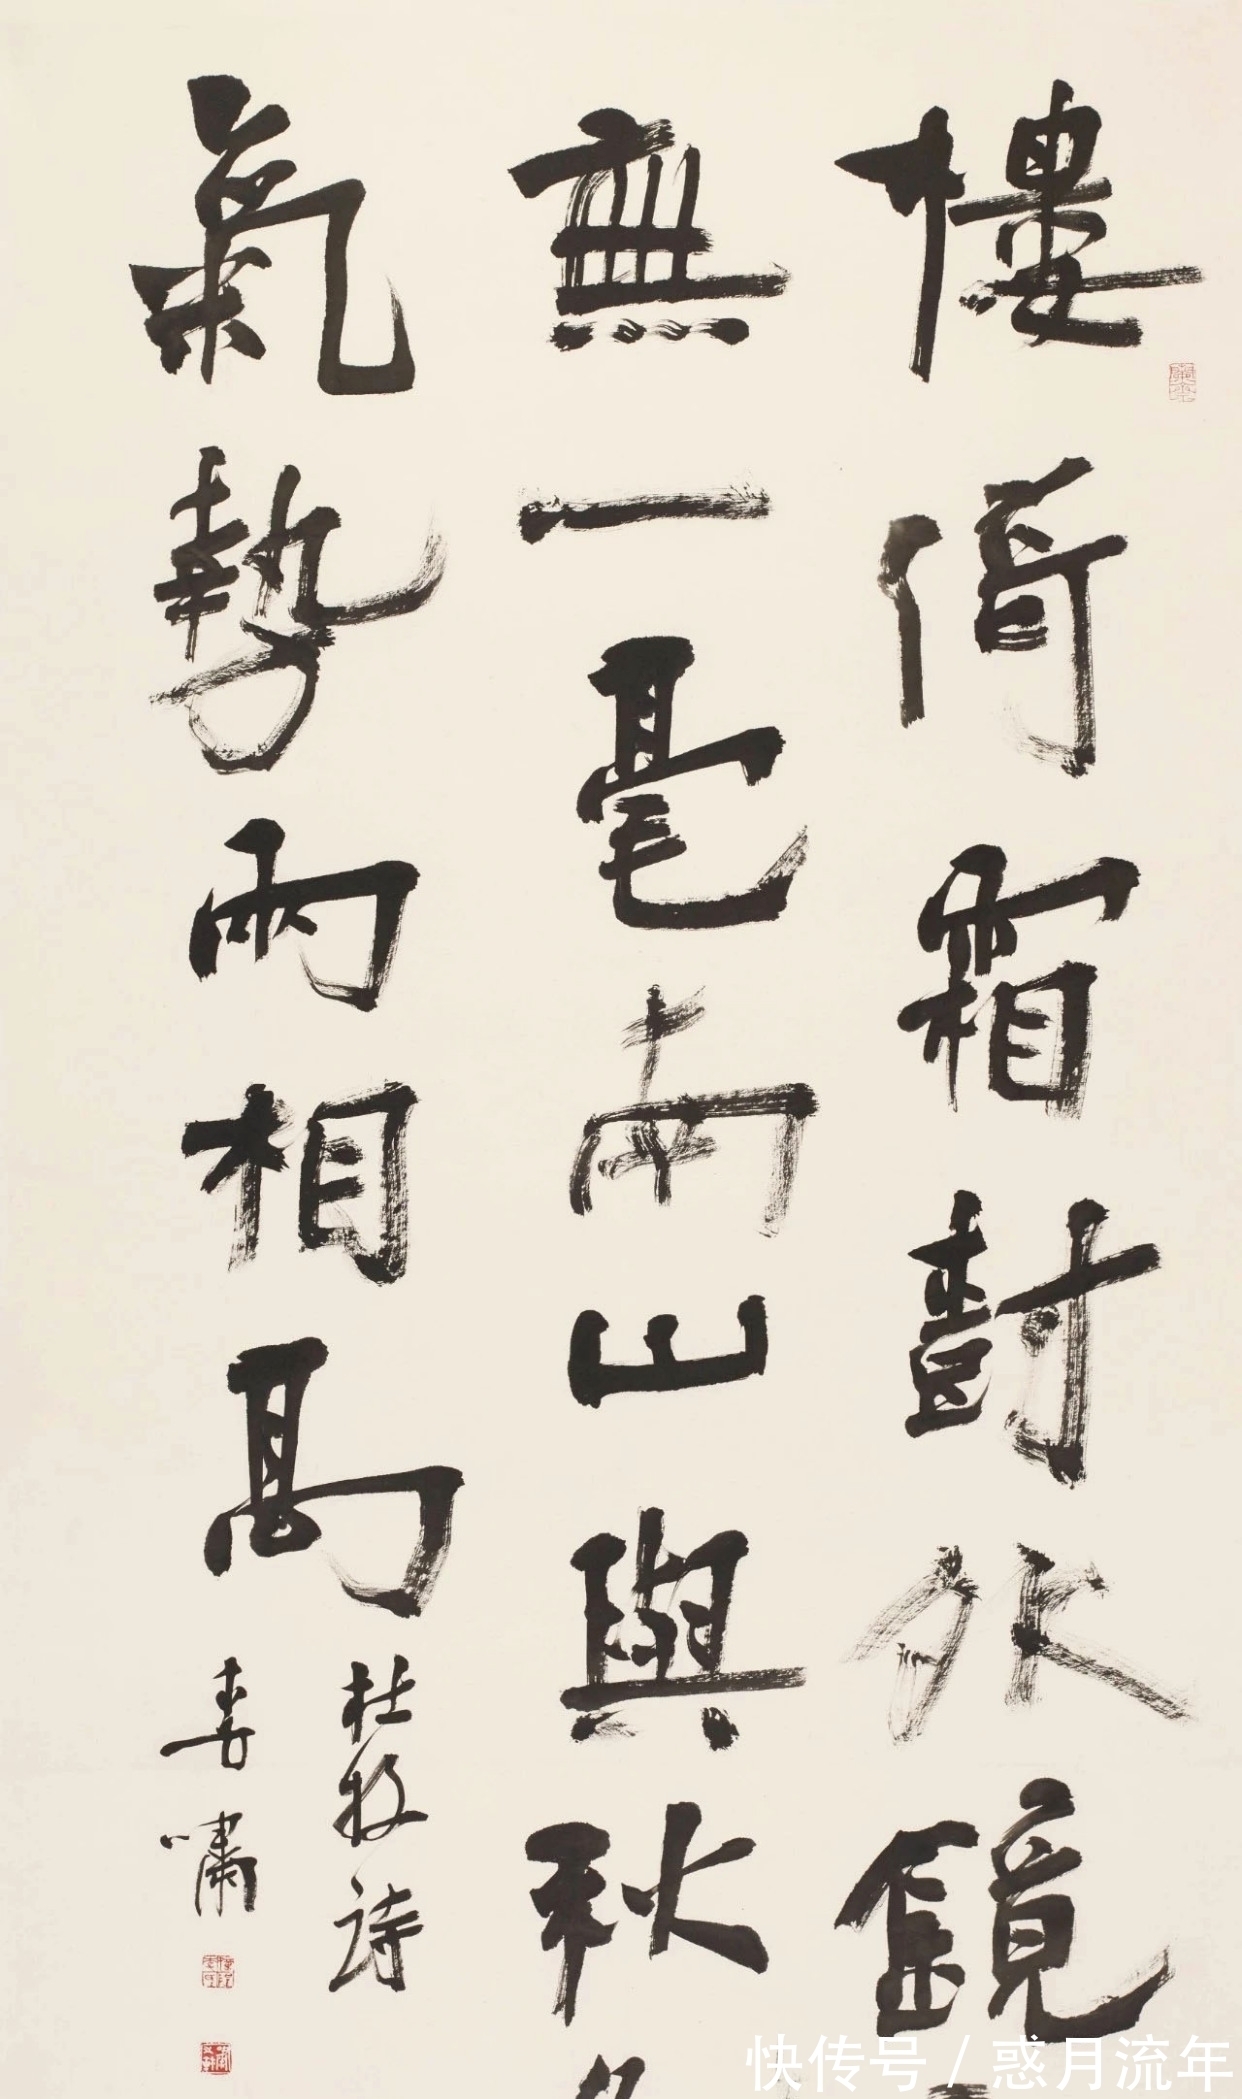 樓倚霜樹外鏡
無一毫南山與秋
氣勢兩相高
杜牧詩
嘯
快传号 / 惑月流年